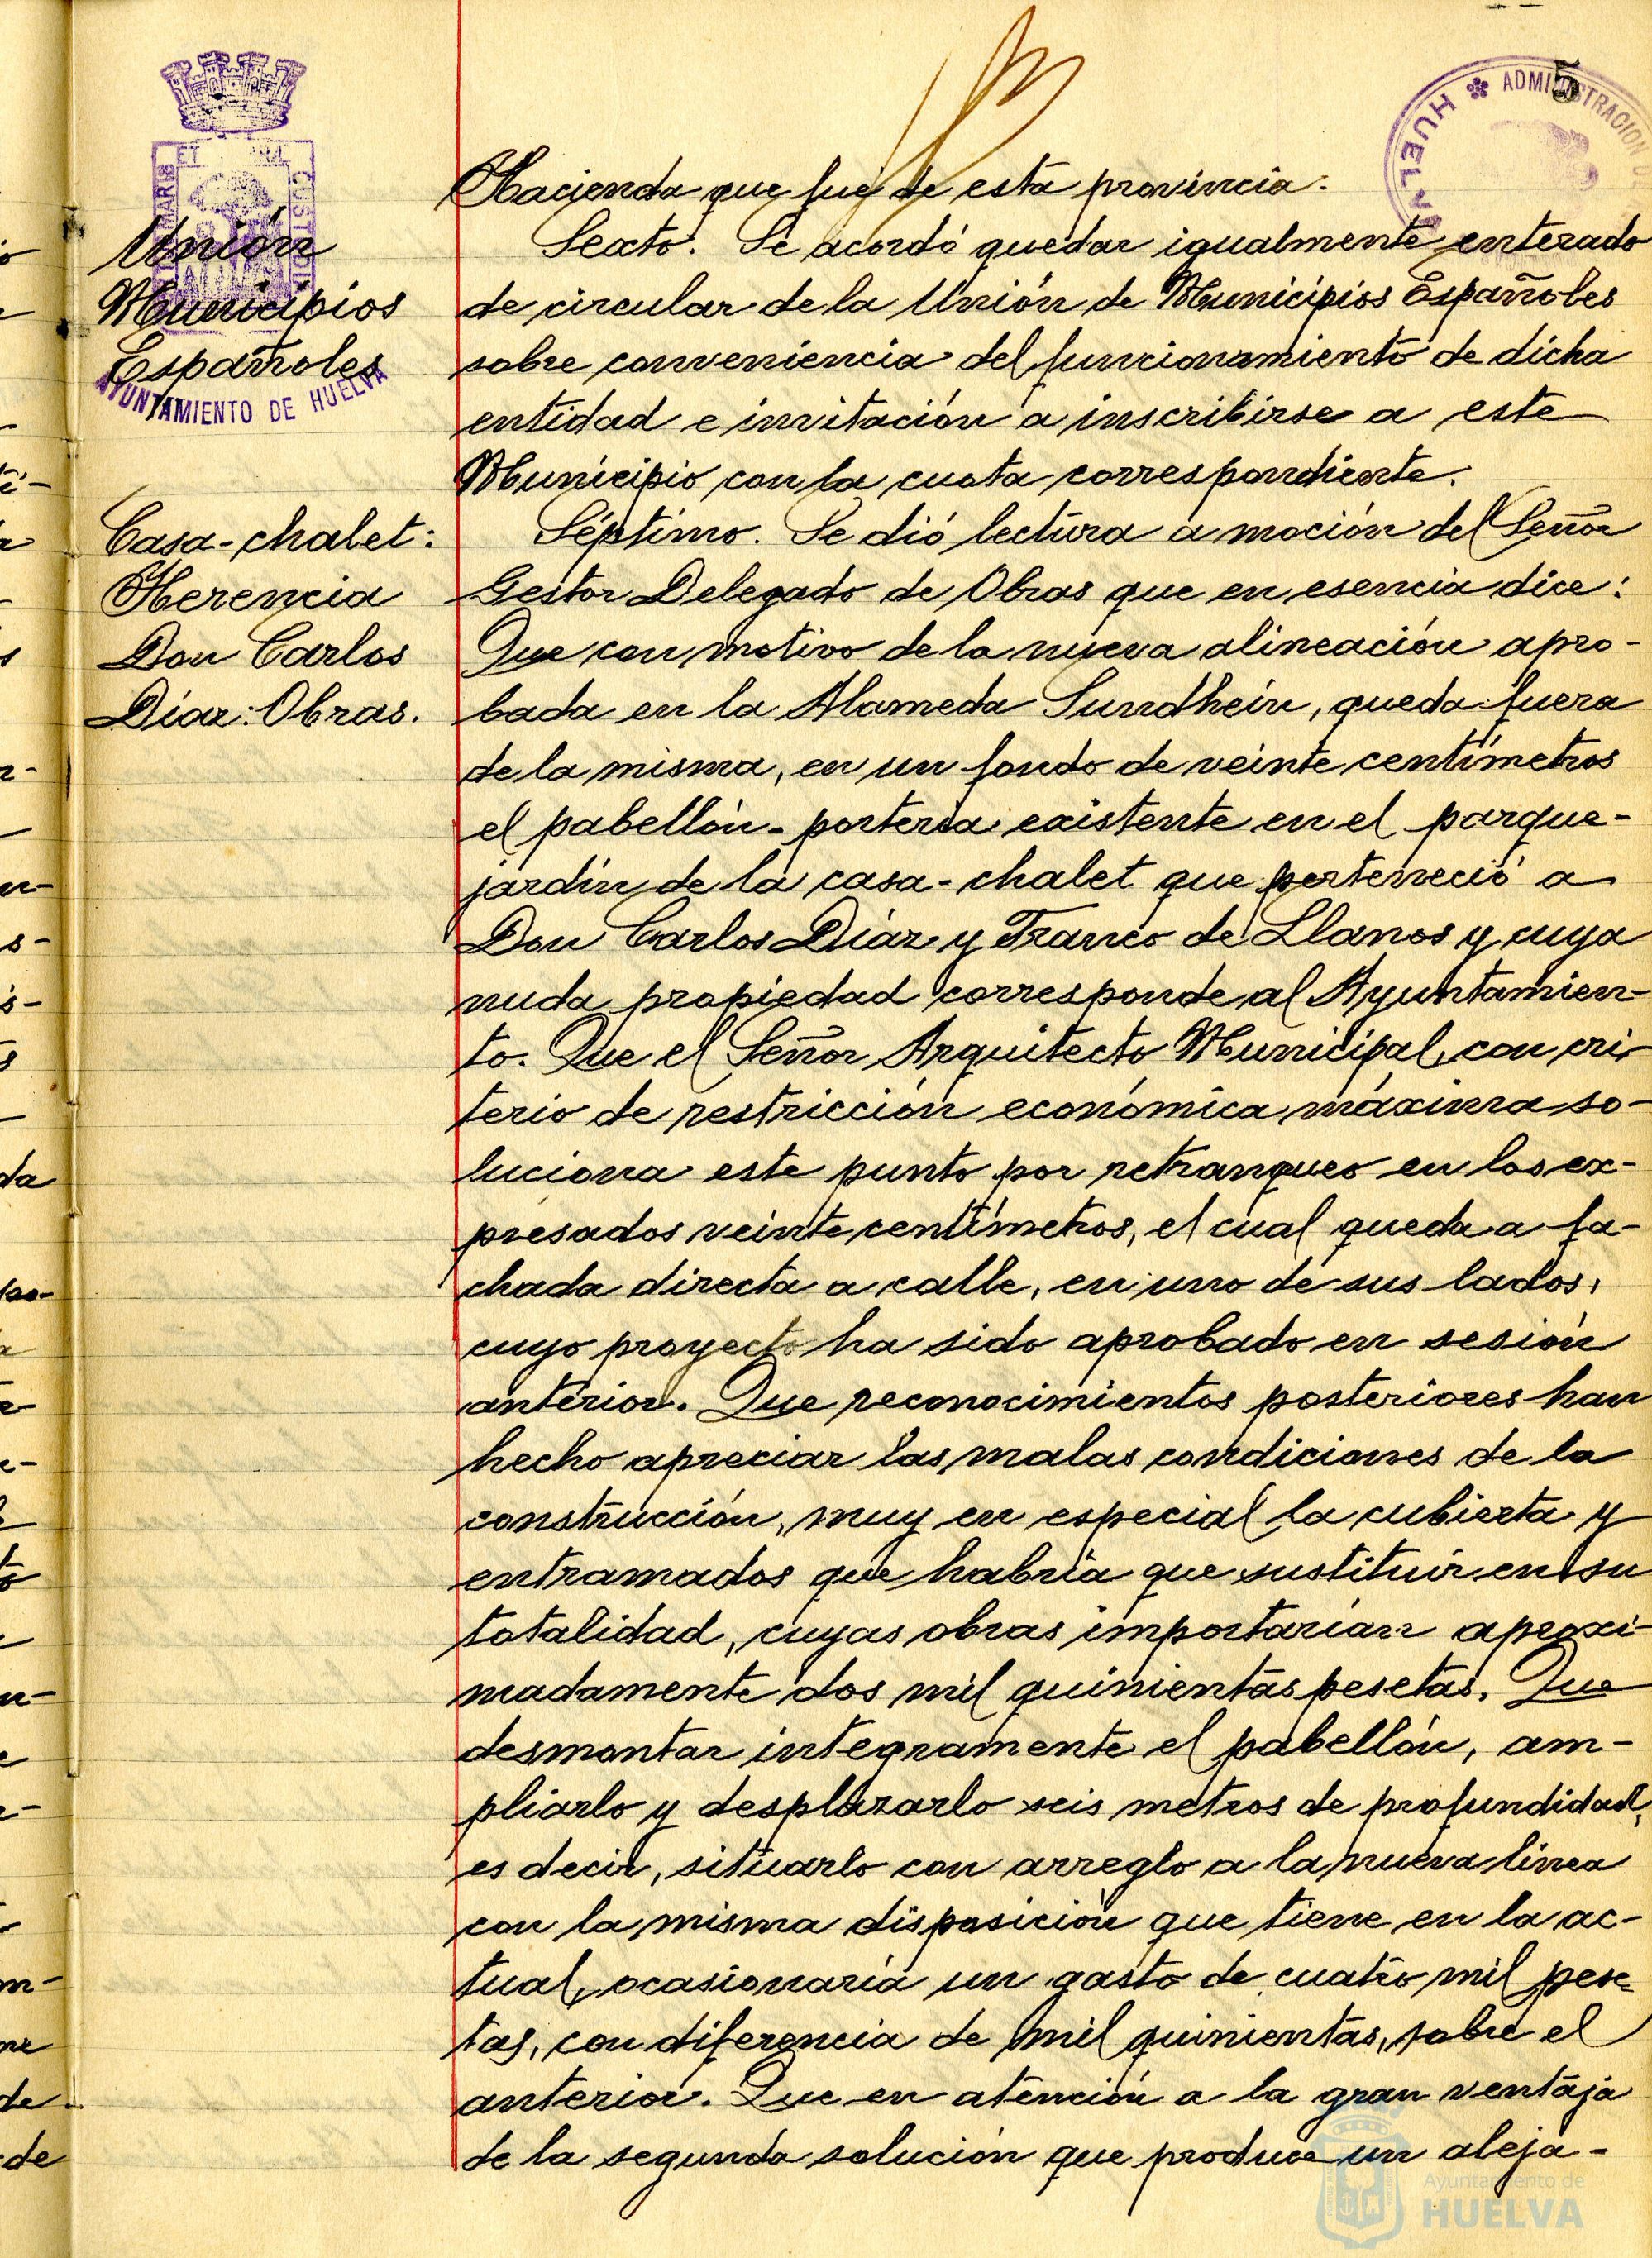 5
ADMINISTRACION DE
HUELVA
AYUNTAMIENTO DE HUELVA
Unión
Municipios
Españoles
Casa-chalet:
Herencia
Don Carlos
Díaz: Obras.
Hacienda que fué de esta provincia.
Sexto. Se acordó quedar igualmente enterado
de circular de la Unión de Municipios Españoles
sobre conveniencia del funcionamiento de dicha
entidad e invitación a inscribirse a este
Municipio con la cuota correspondiente.
Séptimo. Se dió lectura a moción del Señor
Gestor Delegado de Obras que en esencia dice:
Que con motivo de la nueva alineación apro-
bada en la Alameda Sundhein, queda fuera
de la misma, en un fondo de veinte centímetros
el pabellón-portería existente en el parque-
jardín de la casa-chalet que perteneció a
Don Carlos Díaz y Franco de Llanos y cuya
nuda propiedad corresponde al Ayuntamien-
to. Que el Señor Arquitecto Municipal, con cri-
terio de restricción económica máxima so-
luciona este punto por retranqueo en los ex-
presados veinte centímetros, el cual queda a fa-
chada directa a calle, en uno de sus lados,
cuyo proyecto ha sido aprobado en sesión
anterior. Que reconocimientos posteriores han
hecho apreciar las malas condiciones de la
construcción, muy en especial la cubierta y
entramados que habría que sustituir en su
totalidad, cuyas obras importarían aproxi-
madamente dos mil quinientas pesetas. Que
desmontar integramente el pabellón, am-
pliarlo y desplazarlo seis metros de profundidad,
es decir, situarlo con arreglo a la nueva línea
con la misma disposición que tiene en la ac-
tual, ocasionaría un gasto de cuatro mil pese-
tas, con diferencia de mil quinientas, sobre el
anterior. Que en atención a la gran ventaja
de la segunda solución que produce un aleja-
Ayuntamiento de
HUELVA